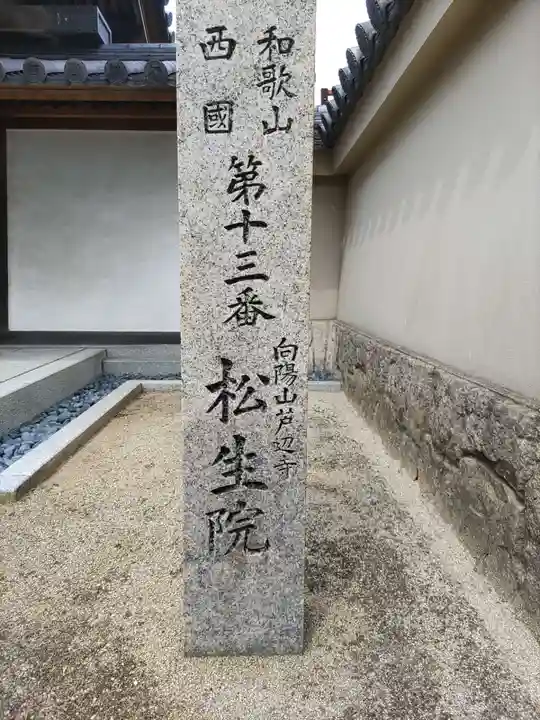 和歌山
西國
第十三番
向陽山芦辺寺
松生院